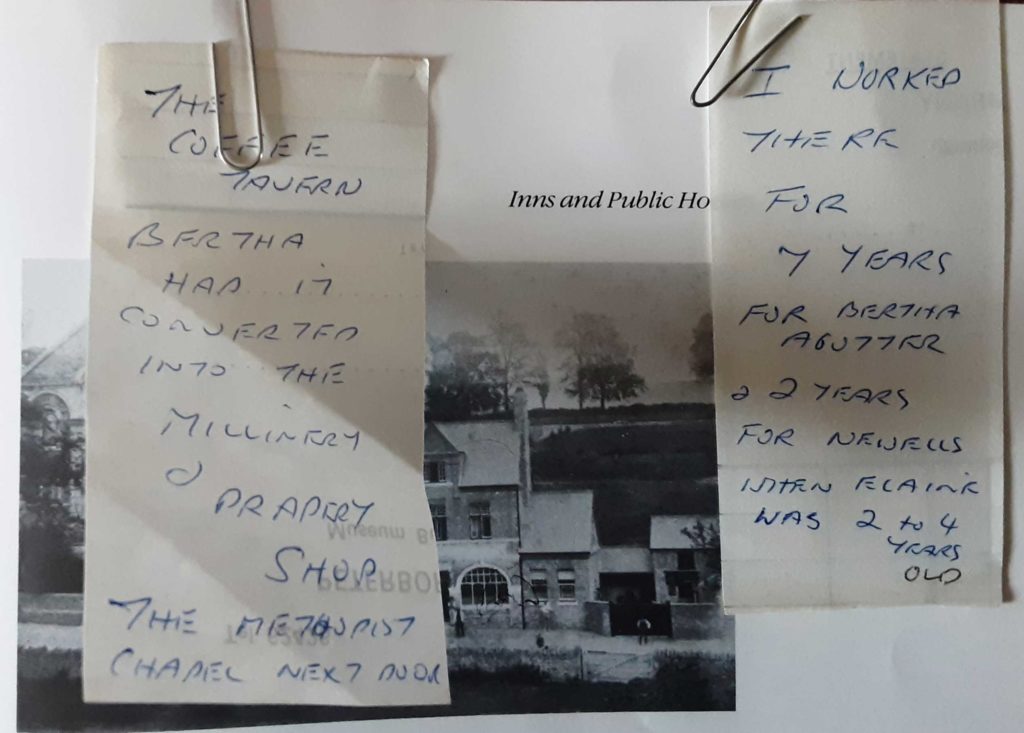 THE
COFFEE
TAVERN
BERTHA
HAD IT
CONVERTED
INTO THE
MILLINERY
&
DRAPERY
SHOP
THE METHODIST
CHAPEL NEXT DOOR
Museum
PETERBOR
Tel.
Inns and Public Ho
I WORKED
THERE
FOR
7 YEARS
FOR BERTHA
AGUTTER
& 2 YEARS
FOR NEWELLS
WHEN ELAINE
WAS 2 to 4
YEARS
OLD